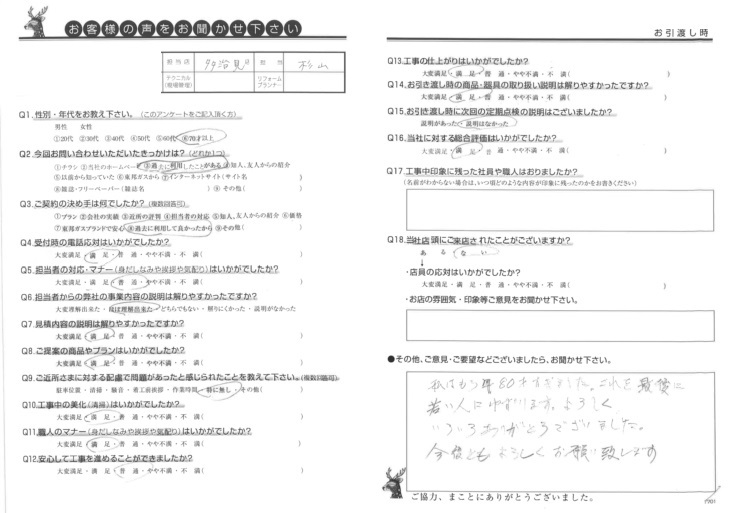 お客様の声をお聞かせ下さい
担当店 多治見店 担当 杉山
テクニカル(現場管理) リフォームプランナー
Q1.性別・年代をお教え下さい。(このアンケートをご記入頂く方)
男性 女性
①20代 ②30代 ③40代 ④50代 ⑤60代 ⑥70才以上
Q2.今回お問い合わせいただいたきっかけは?(どれか1つ)
①チラシ ②当社のホームページ ③過去に利用したことがある ④知人、友人からの紹介
⑤以前から知っていた ⑥東邦ガスから ⑦インターネットサイト(サイト名 )
⑧雑誌・フリーペーパー(雑誌名 ) ⑨その他( )
Q3.ご契約の決め手は何でしたか?(複数回答可)
①プラン ②会社の実績 ③近所の評判 ④担当者の対応 ⑤知人、友人からの紹介 ⑥価格
⑦東邦ガスブランドで安心 ⑧過去に利用して良かったから ⑨その他( )
Q4.受付時の電話応対はいかがでしたか?
大変満足・満 足・普 通・やや不満・不 満( )
Q5.担当者の対応・マナー(身だしなみや挨拶や気配り)はいかがでしたか?
大変満足・満 足・普 通・やや不満・不 満( )
Q6.担当者からの弊社の事業内容の説明は解りやすかったですか?
大変理解出来た・ほぼ理解出来た・どちらでもない・解りにくかった・説明がなかった
Q7.見積内容の説明は解りやすかったですか?
大変満足・満 足・普 通・やや不満・不 満( )
Q8.ご提案の商品やプランはいかがでしたか?
大変満足・満 足・普 通・やや不満・不 満( )
Q9.ご近所さまに対する配慮で問題があったと感じられたことを教えて下さい。(複数回答可)
駐車位置・清掃・騒音・着工前挨拶・作業時間・特に無し・その他( )
Q10.工事中の美化(清掃)はいかがでしたか?
大変満足・満 足・普 通・やや不満・不 満( )
Q11.職人のマナー(身だしなみや挨拶や気配り)はいかがでしたか?
大変満足・満 足・普 通・やや不満・不 満( )
Q12.安心して工事を進めることができましたか?
大変満足・満 足・普 通・やや不満・不 満( )
お引渡し時
Q13.工事の仕上がりはいかがでしたか?
大変満足・満 足・普 通・やや不満・不 満( )
Q14.お引き渡し時の商品・器具の取り扱い説明は解りやすかったですか?
大変満足・満 足・普 通・やや不満・不 満( )
Q15.お引き渡し時に次回の定期点検の説明はございましたか?
説明があった・説明はなかった
Q16.当社に対する総合評価はいかがでしたか?
大変満足・満 足・普 通・やや不満・不 満( )
Q17.工事中印象に残った社員や職人はおりましたか?
(名前がわからない場合は、いつ頃どのような内容が印象に残ったのかをお書きください)
Q18.当社店頭にご来店されたことがございますか?
ある な い
↓
・店員の応対はいかがでしたか?
大変満足・満 足・普 通・やや不満・不 満( )
・お店の雰囲気・印象等ご意見をお聞かせ下さい。
●その他、ご意見・ご要望などございましたら、お聞かせ下さい。
私はもう 80才すぎました。これを最後に
若い人にゆずります。よろしく
いろいろありがとうございました。
今後ともよろしくお願い致します
ご協力、まことにありがとうございました。